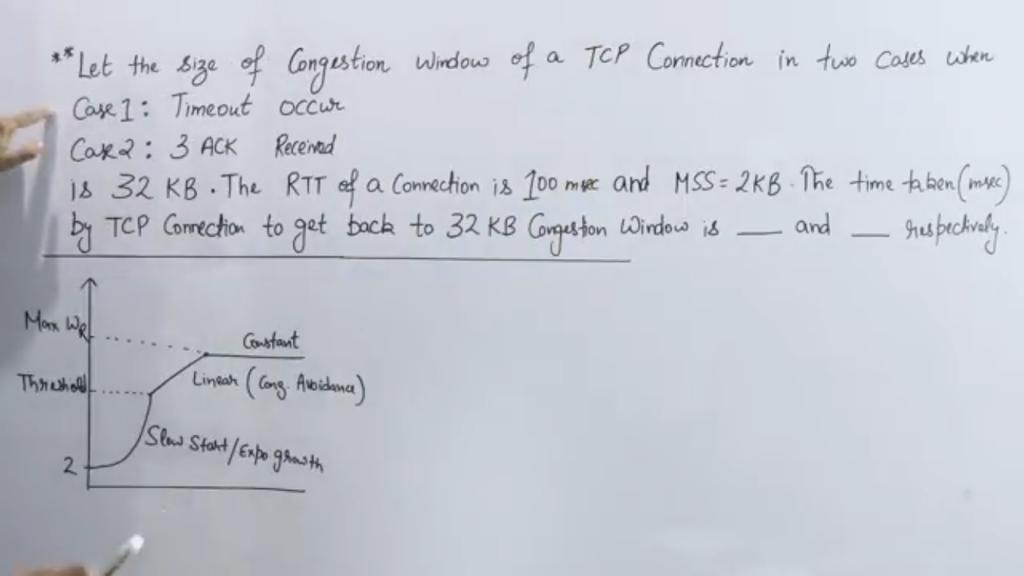 **Let the size of Congestion Window of a TCP Connection in two cases when
Case1: Timeout occur
Case2: 3 ACK Received
is 32 KB. The RTT of a Connection is 100 msec and MSS=2KB. The time taken(msec)
by TCP Connection to get back to 32 KB Congestion Window is __ and __ respectively.
Max WR
Constant
Threshold
Linear (Cong. Avoidance)
Slow Start/Expo growth
2